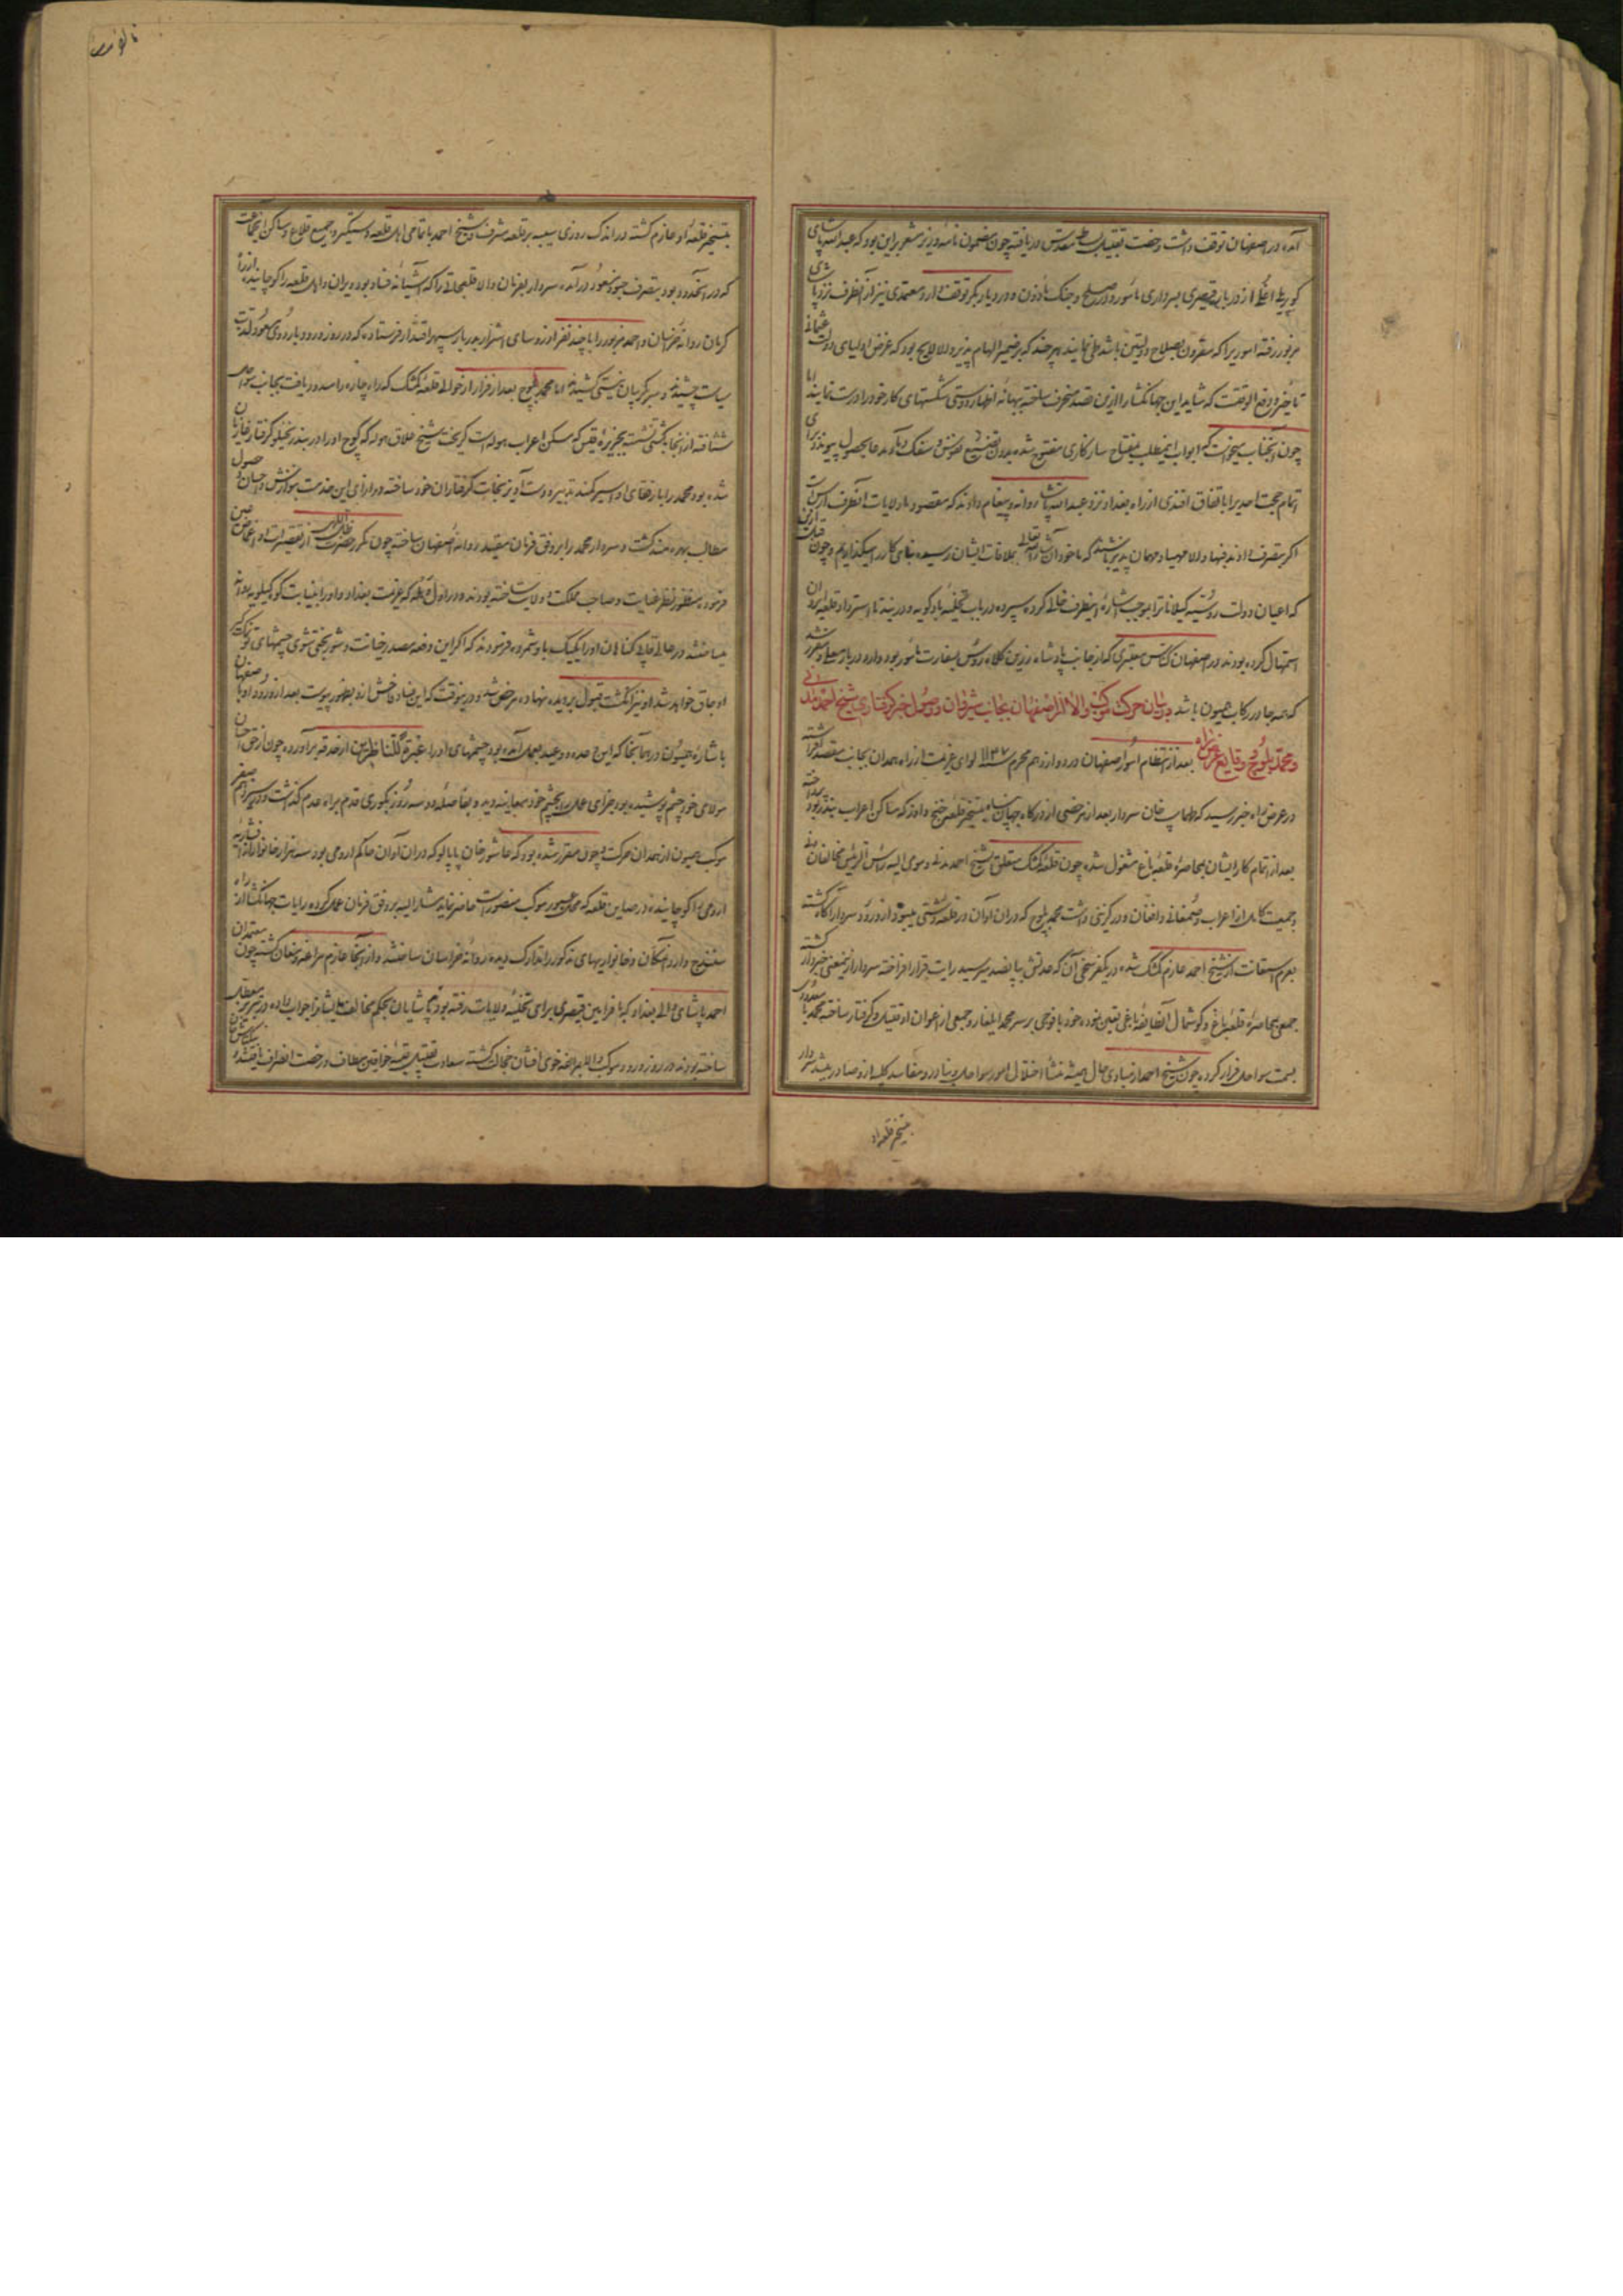 آمده در اصفهان توقف داشت رخصت تقبیل بساط مقدس دریافته چون مضمون نامهٔ وزیر مشعر براین بود که عبدالله پاشای
کوپریلی اغلی از دربار قیصری بسرداری مأمور و در صلح و جنگ مأذون و در دیاربکر توقف دارد معتمدی نیز از آنطرف نزد پاشای
مزبور رفته امور یرا که مقرون بصلاح دولتین باشد طی نمایند هر چند که بر ضمیر الهام پذیر و لالایح بود که غرض اولیای دولت عثمانی
تأخیر و دفع الوقتست که شاید این جهانگشا را ازین قصد منحرف ساخته ببهانه اظهار دوستی شکستهای کار خود را درست نمایند اما
چون آنجناب میخواست که ابواب اینمطلب بمفتاح سازکاری مفتوح شده بدون تضییع نفوس و سفک دماء مدعا بحصول پیوندد برای
اتمام حجت احدیرا باتفاق افندی از راه بغداد نزد عبدالله پاشا روانه و پیغام دادند که مقصود ما ولایات آنطرف ارس است
اگر بتصرف دادند فبها والا مهیا و مهمان پذیر باشند که ما خود انشاءالله تعالی بملاقات ایشان رسیده بنای کار را میگذاریم و چون قبل ازین
که اعیان دولت روسیه گیلانات را بموجب اشارهٔ اینطرف خالی کرده سپرده در باب تخلیهٔ بادکوبه و دربند تا استرداد قلعهٔ ایروان
استمهال کرده بودند در اصفهان کناس معتبری که از جانب پادشاه زرین کلاه روس بسفارت مأمور بود وارد دربار معلی و مقرر شد
که همه جا در رکاب همیون باشد در بیان حرکت موکب والا از اصفهان بجانب شیروان و وصول خبر گرفتاری شیخ احمد مدنی
و محمد بلوچ و وقایع عرض راه بعد از انتظام امور اصفهان در دوازدهم محرم ۱۱۴۷ لوای عزیمت از راه همدان بجانب مقصد افراشته
در عرض راه خبر رسید که طهماسب خان سردار بعد از مرخصی از درگاه جهان پناه بتسخیر قلعهٔ خنج و اوز که ساکن اعراب بنادر بود پرداخته
بعد از اتمام کار ایشان بمحاصرهٔ قلعهٔ باغ مشغول شده چون قلعهٔ کمشک متعلق بشیخ احمد مدنی و مومی الیه رأس الرئیس مخالفان
و جمعیت کامل از اعراب و افغان و درگزینی داشت محمد بلوچ که دران اوان در قلعهٔ دشتی میبود از ورود سردار آگاه گشته
بعزم استعانت از شیخ احمد عازم کمشک شده در یکفرسخی آن که عدتش بپانصد میرسید رایت قرار افراخته سردار ازینمعنی خبردار گشته
جمعی بمحاصرهٔ قلعهٔ باغ و گوشمال آنطایفه باغی تعیین نموده خود با فوجی بر سر محمد ایلغار و جمعی از اعوان او قتیل و گرفتار ساخته محمد با معدودی
بسمت سواحل فرار کرده چون شیخ احمد از مبادی حال همیشه منشأ اختلال امور سواحل و بنادر و مفاسد کلیه ازو صادر میشد سردار
بتسخیر قلعه او
بتسخیر قلعهٔ او عازم گشته در اندک روزی سیبه بر قلعه مشرف و شیخ احمد با تمامی اهل قلعه دستگیر و جمیع قلاع و مساکن آن جماعت
که در آنحدود بود بتصرف جنود منصور درآمده سردار بفرمان والا قلعجاتی را که آشیانهٔ فساد بود ویران و اهل قلعه را کوچانیده از راه
کرمان روانه خراسان و احمد مزبور را با چند نفر از رؤسای اشرار بدربار سپهر اقتدار فرستاده که در روز ورود باردوی مسعود لذت
سیاست چشیدند و سر بگریبان نیستی کشیدند اما محمد بلوچ بعد از فرار از حوالی قلعهٔ کمشک که راه چاره را مسدود یافت بجانب سواحل
شتافته از آنجا بکشتی نشسته بجزیره قیس که مسکن اعراب هوله است گریخت شیخ علاق هوله که کوچ او را در بند رنجیلو گرفتار غازیان
شده بود محمد را با رفقای او اسیر کمند تدبیر و دست آویز نجات گرفتاران خود ساخته و در ازای این خدمت بنوازش و احسان و حصول
مطالب بهره مند گشت و سردار محمد را بر وفق فرمان مقید روانه اصفهان ساخته چون مکرر حضرت ظل اللهی از تقصیرات او اغماض عین
فرموده منظور نظر عنایت و صاحب مملکت و ولایت ساخته بودند و در اول دفعه که عزیمت بغداد و او را بنیابت کوکیلویه روانه
میساختند در حالی قلابی گناهان او را یکیک باو شمرده فرمودند که اگر این دفعه مصدر خیانت و شوربختی شوی چشمهای تو نمک گیر
اوجاق خواهد شد او نیز انگشت قبول بر دیده نهاده مرخص شد و درینوقت که این فساد فاحش ازو بظهور پیوست بعد از ورود او باصفهان
باشارهٔ همیون در همانجا که این وعده و وعید بعمل آمده بود چشمهای او را از حدقه برآوردند چون از حق احسان
مولای خود چشم پوشیده بود جزای عمل را بچشم خود بمعاینه دید و بفاصلهٔ دو سه روز بکوری قدم براه عدم گذاشت و در بیستم صفر
موکب همیون از همدان حرکت و چون مقرر شده بود که عاشور خان پاپالو که دران اوان حاکم ارومی بود سه هزار خانوار از افشاریه
ارومی را کوچانیده در صاین قلعه که محل عبور موکب منصور است حاضر نماید مشار الیه بر وفق فرمان عمل کرده رایات جهانگشا از راه
سنندج وارد آنمکان و خانواریهای مذکور را تدارک دیده روانه خراسان ساختند و از آنجا عازم مراغه و مغان گشته چون معتمدان
احمد پاشای والی بغداد که با فرامین قیصری برای تخلیهٔ ولایات رفته بودند پاشایان بحکم مخالفت ایشانرا جواب داده در تبریز معطل
ساخته بودند در روز ورود موکب والا بمراغه خوی افشان خجالت گشته سعادت تقبیل عتبهٔ خواقین مطاف و رخصت انصراف یافتند و